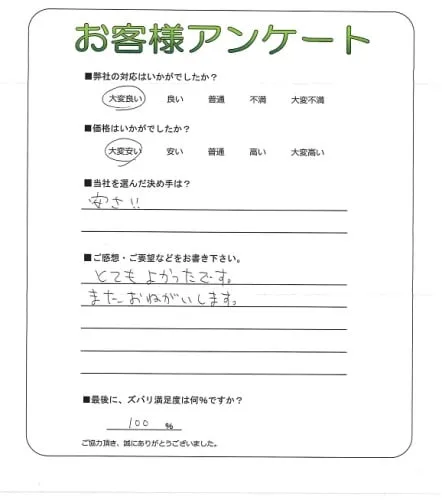 お客様アンケート
■弊社の対応はいかがでしたか?
大変良い 良い 普通 不満 大変不満
■価格はいかがでしたか?
大変安い 安い 普通 高い 大変高い
■当社を選んだ決め手は?
安さ!!
■ご感想・ご要望などをお書き下さい。
とてもよかったです。
またおねがいします。
■最後に、ズバリ満足度は何%ですか?
100 %
ご協力頂き、誠にありがとうございました。